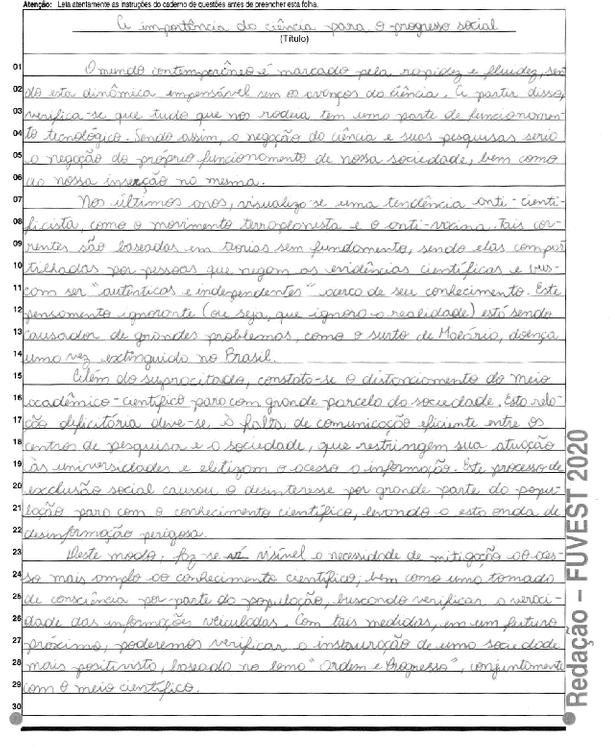 Atenção: Leia atentamente as instruções do caderno de questões antes de preencher esta folha.
A importância da ciência para o progresso social
(Título)
01 O mundo contemporâneo é marcado pela rapidez e fluidez, sen
02 do esta dinâmica impensável sem os avanços da ciência. A partir disso,
03 verifica-se que tudo que nos rodeia tem uma parte de funcionamen-
04 to tecnológico. Sendo assim, a negação da ciência e suas pesquisas seria
05 a negação do próprio funcionamento de nossa sociedade, bem como
06 da nossa inserção na mesma.
07 Nos últimos anos, visualiza-se uma tendência anti-cienti-
08 ficista, como o movimento terraplanista e o anti-vacina. Tais cor-
09 rentes são baseadas em teorias sem fundamento, sendo elas compar
10 trilhadas por pessoas que negam as evidências científicas e bus-
11 cam ser "autênticas e independentes" acerca de seu conhecimento. Este
12 pensamento ignorante (ou seja, que ignora a realidade) está sendo
13 causador de grandes problemas, como o surto de Malária, doença
14 uma vez extinguida no Brasil.
15 Além do supracitado, constata-se o distanciamento do meio
16 acadêmico-científico para com grande parcela da sociedade. Esta rela-
17 ção deficitária deve-se à falta de comunicação eficiente entre os
18 centros de pesquisa e a sociedade, que restringem sua atuação
19 às universidades e elitizam o acesso a informação. Este processo de
20 exclusão social causou o desinteresse por grande parte da popu-
21 lação para com o conhecimento científico, levando a esta onda de
22 desinformação perigosa.
23 Deste modo, faz-se visível a necessidade de mitigação ao aces-
24 so mais amplo ao conhecimento científico, bem como uma tomada
25 de consciência por parte da população, buscando verificar a veraci-
26 dade das informações veiculadas. Com tais medidas, em um futuro
27 próximo, poderemos verificar a instauração de uma sociedade
28 mais positivista, baseada no lema "Ordem e Progresso", conjuntamente
29 com o meio científico.
30
Redação – FUVEST 2020